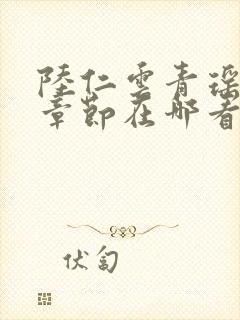 陸仁雲青瑶
章節在哪看
伏匐